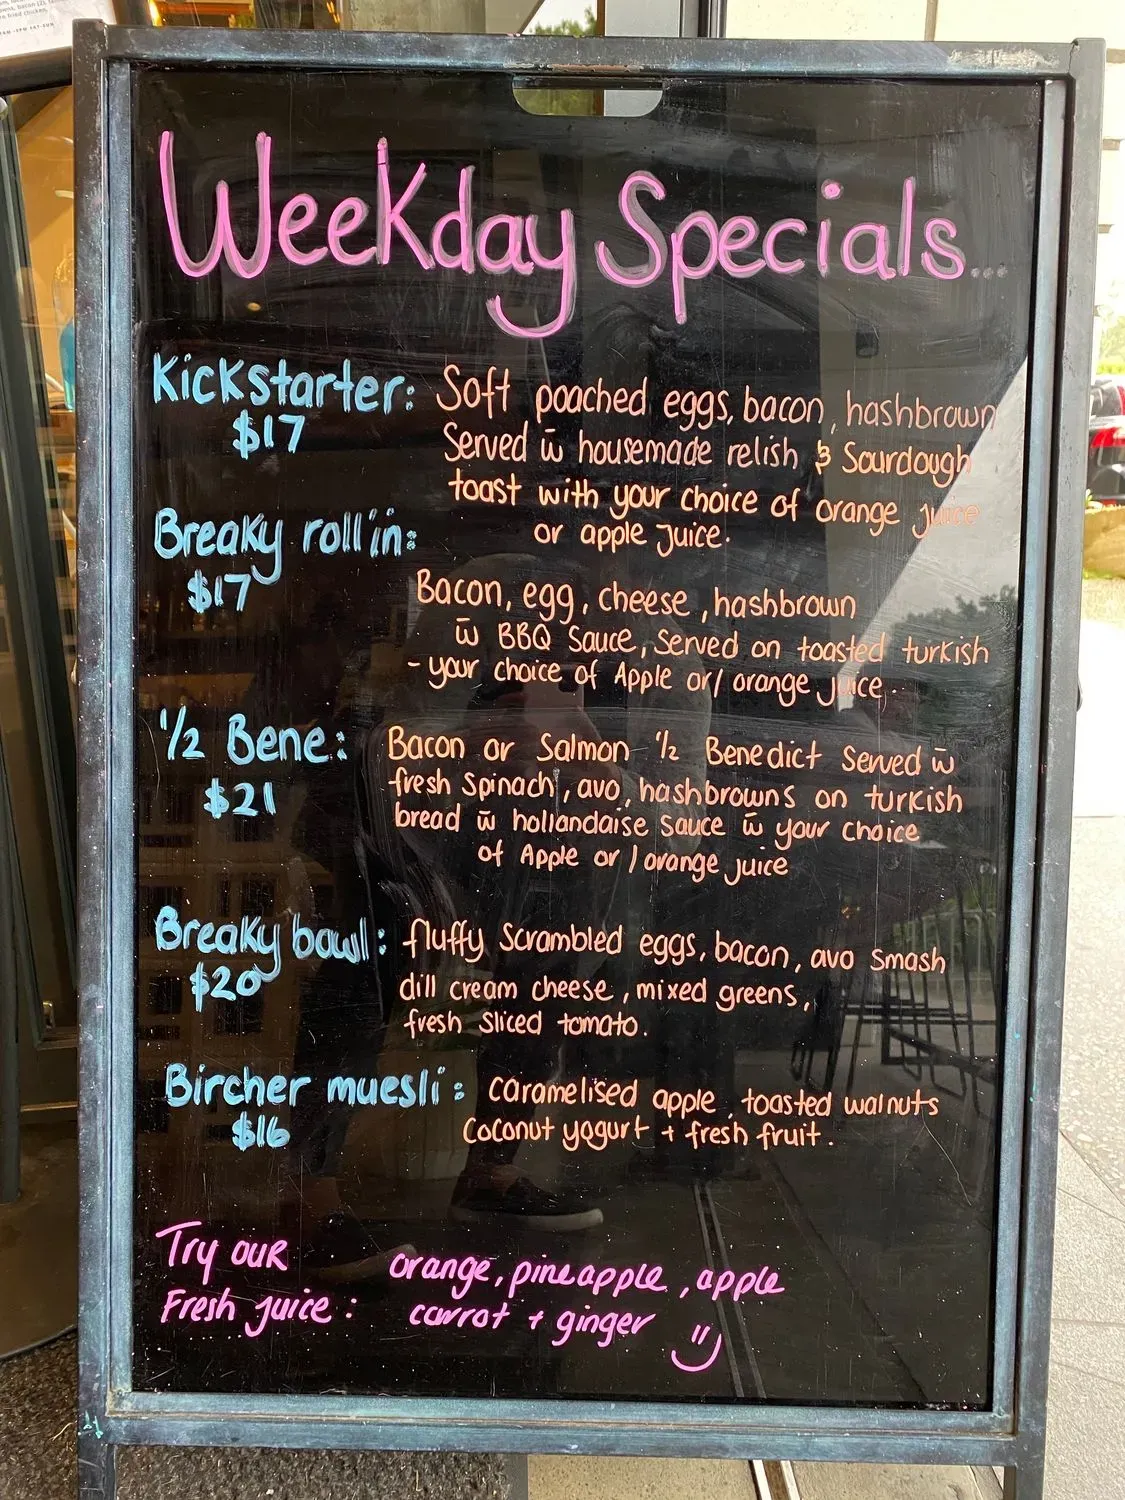 WeeKday Specials...
Kickstarter: Soft poached eggs, bacon, hashbrown
$17 Served w̄ housemade relish & Sourdough
toast with your choice of orange juice
or apple Juice.
Breaky roll in:
$17 Bacon, egg, cheese, hashbrown
w̄ BBQ Sauce, served on toasted turkish
- your choice of Apple or/ orange juice.
1/2 Bene: Bacon or Salmon 1/2 Benedict Served w̄
$21 fresh Spinach, avo, hashbrowns on turkish
bread w̄ hollandaise sauce w̄ your choice
of Apple or / orange juice
Breaky bowl: fluffy Scrambled eggs, bacon, avo smash
$20 dill cream cheese, mixed greens,
fresh sliced tomato.
Bircher muesli: caramelised apple, toasted walnuts
$16 Coconut yogurt + fresh fruit.
Try our orange, pineapple, apple
Fresh juice: carrot + ginger